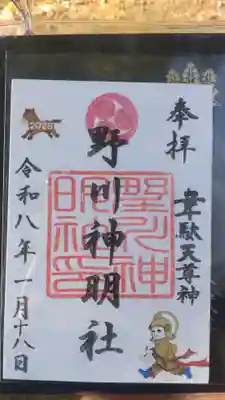 奉拝
韋駄天尊神
野川神明社
野川神明社印
令和八年一月十八日
2026